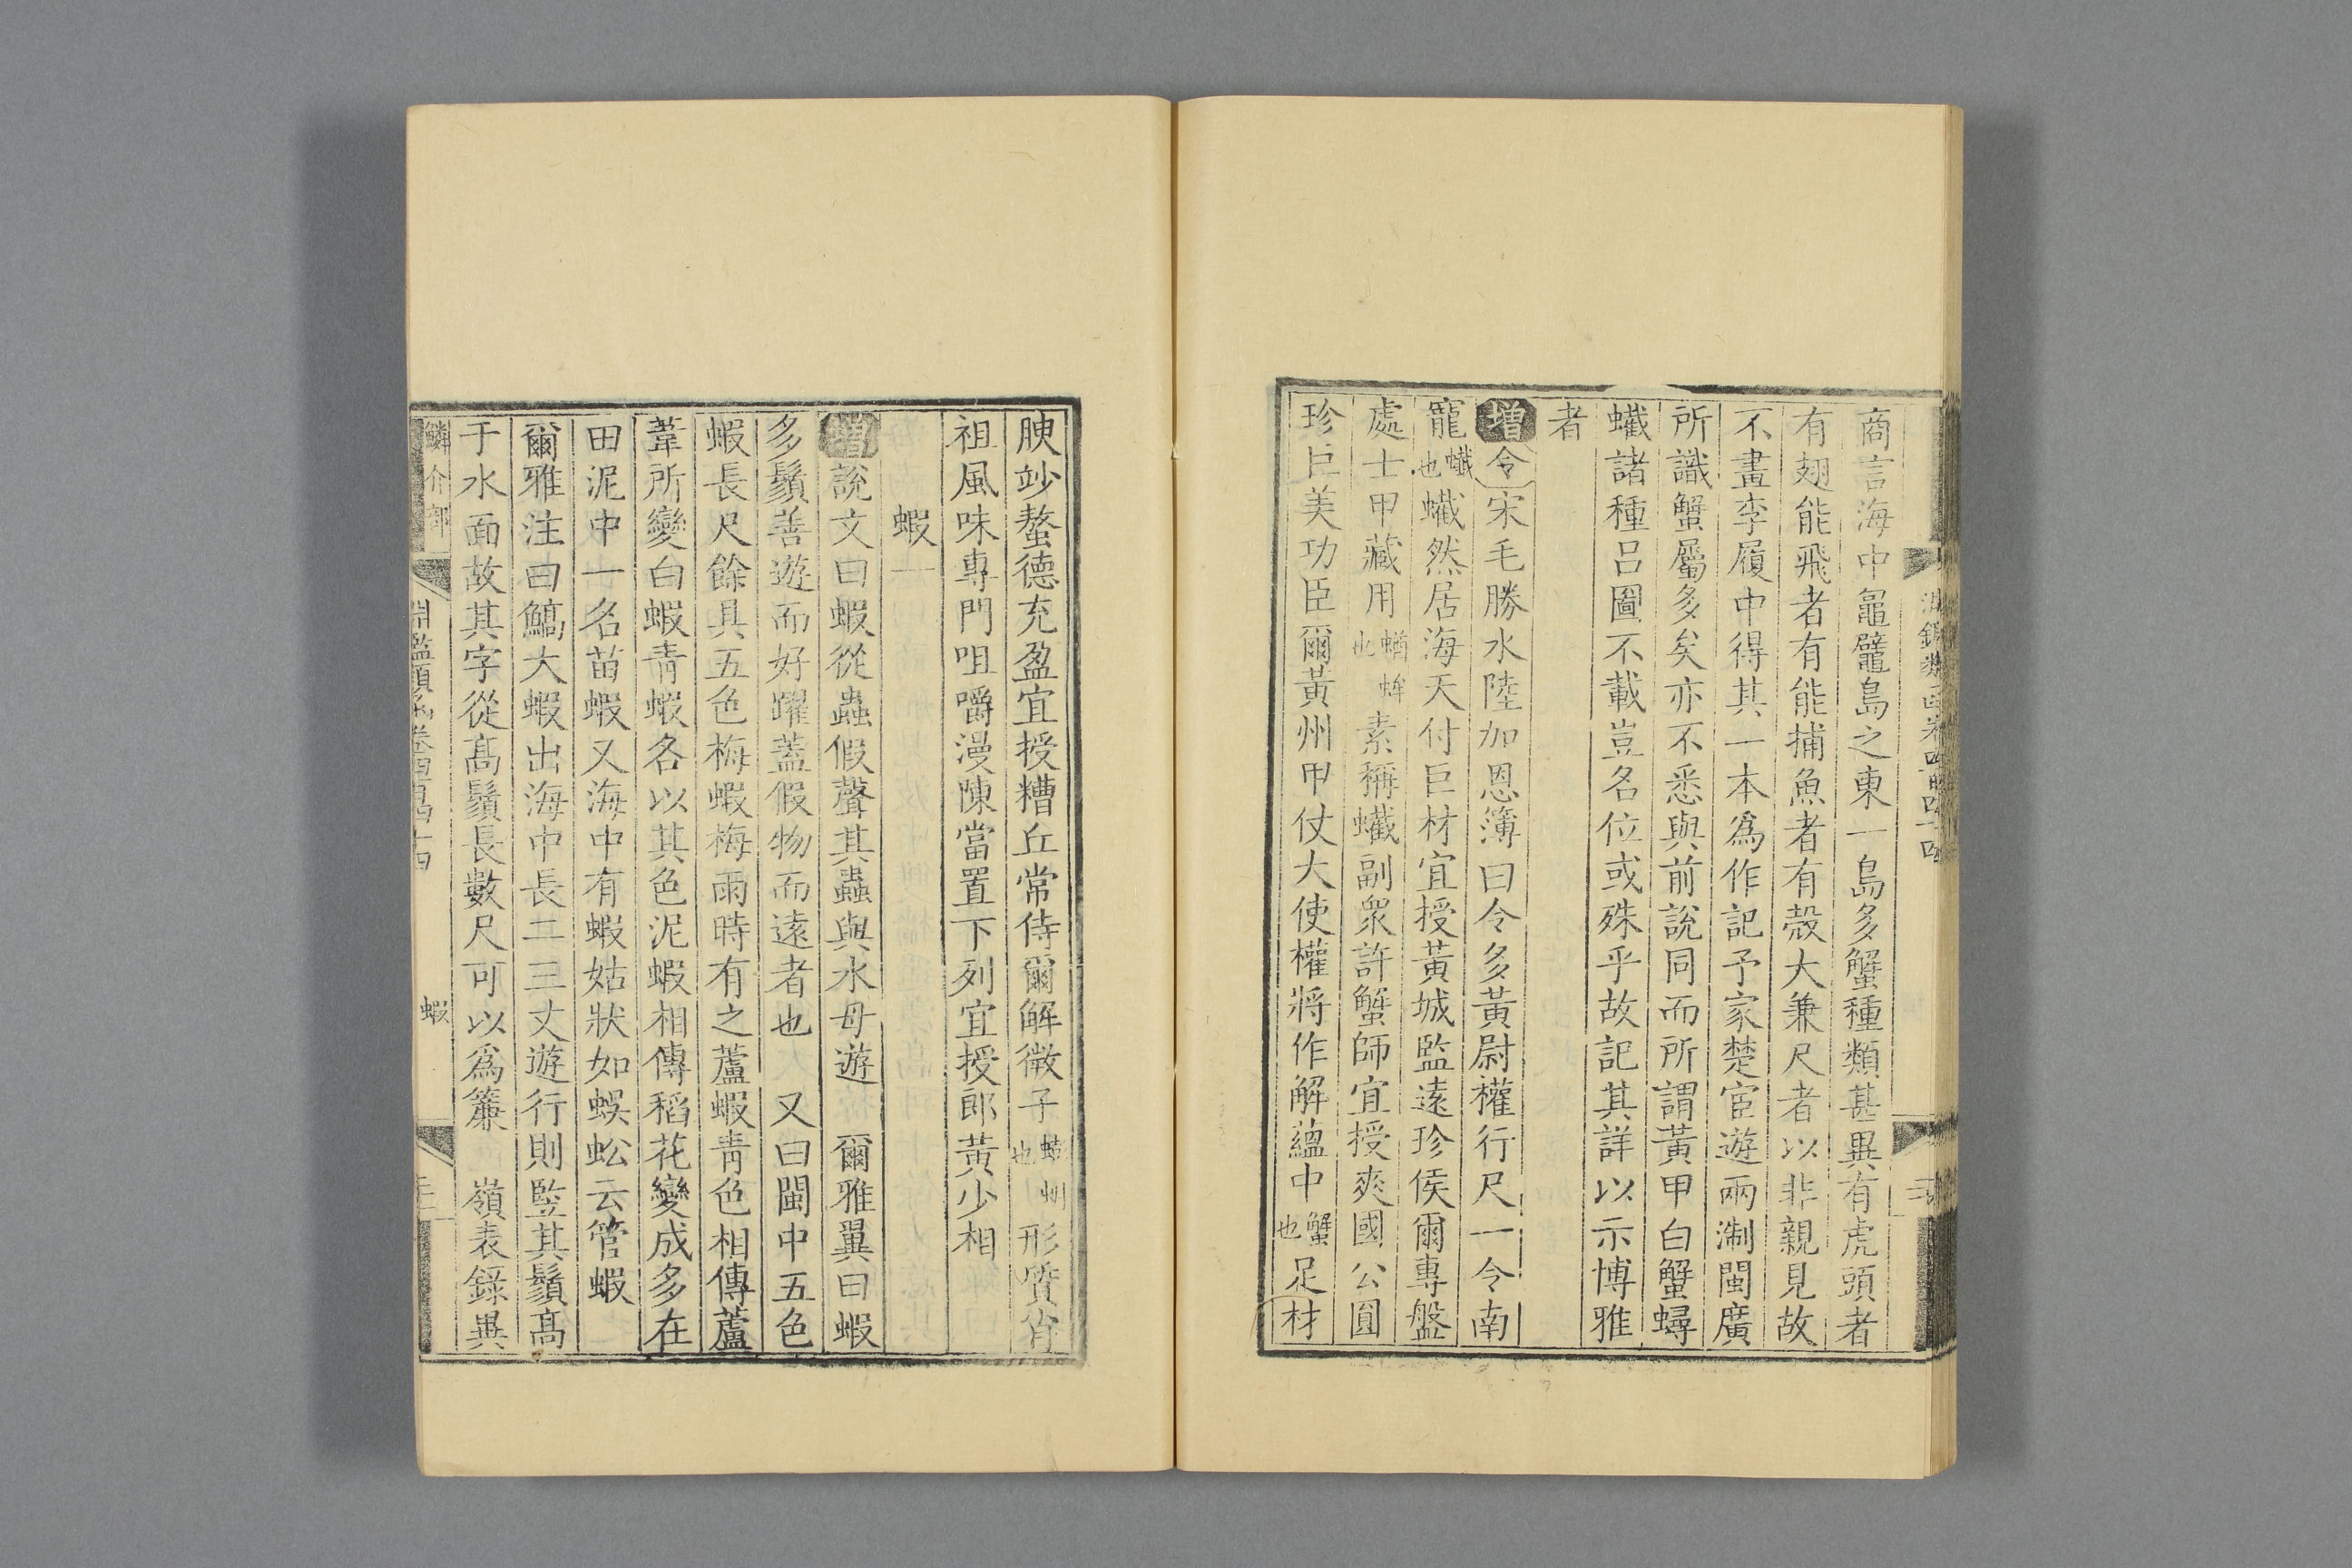 商言海中鼊鼊島之東一島多蟹種類甚異有虎頭者
有翅能飛者有能捕魚者有殼大兼尺者以非親見故
不畫李履中得其一本爲作記予家楚宦遊兩淛閩廣
所識蟹屬多矣亦不悉與前說同而所謂黃甲白蟹蟳
蠘諸種呂圖不載豈名位或殊乎故記其詳以示博雅
者
增令宋毛勝水陸加恩簿曰令多黃尉權行尺一令南
寵蠘也蠘然居海天付巨材宜授黃城監遠珍侯爾專盤
處士甲藏用蝤蛑也素稱蠘副眾許蟹師宜授爽國公圓
珍巨美功臣爾黃州甲仗大使權將作解蘊中蟹也足材
腴妙螯德充盈宜授糟丘常侍爾解微子蟛蜞也形質肖
祖風味專門咀嚼漫陳當置下列宜授郎黃少相
蝦一
增說文曰蝦從蟲假聲其蟲與水母遊 爾雅翼曰蝦
多鬚善遊而好躍蓋假物而遠者也 又曰閩中五色
蝦長尺餘具五色梅蝦梅雨時有之蘆蝦青色相傳蘆
葦所變白蝦青蝦各以其色泥蝦相傳稻花變成多在
田泥中一名苗蝦又海中有蝦姑狀如蜈蚣云管蝦
爾雅注曰鰝大蝦出海中長二三丈遊行則竪其鬚高
于水面故其字從高鬚長數尺可以爲簾 嶺表錄異
鱗介部
淵鑑類函卷四百四十四
蝦